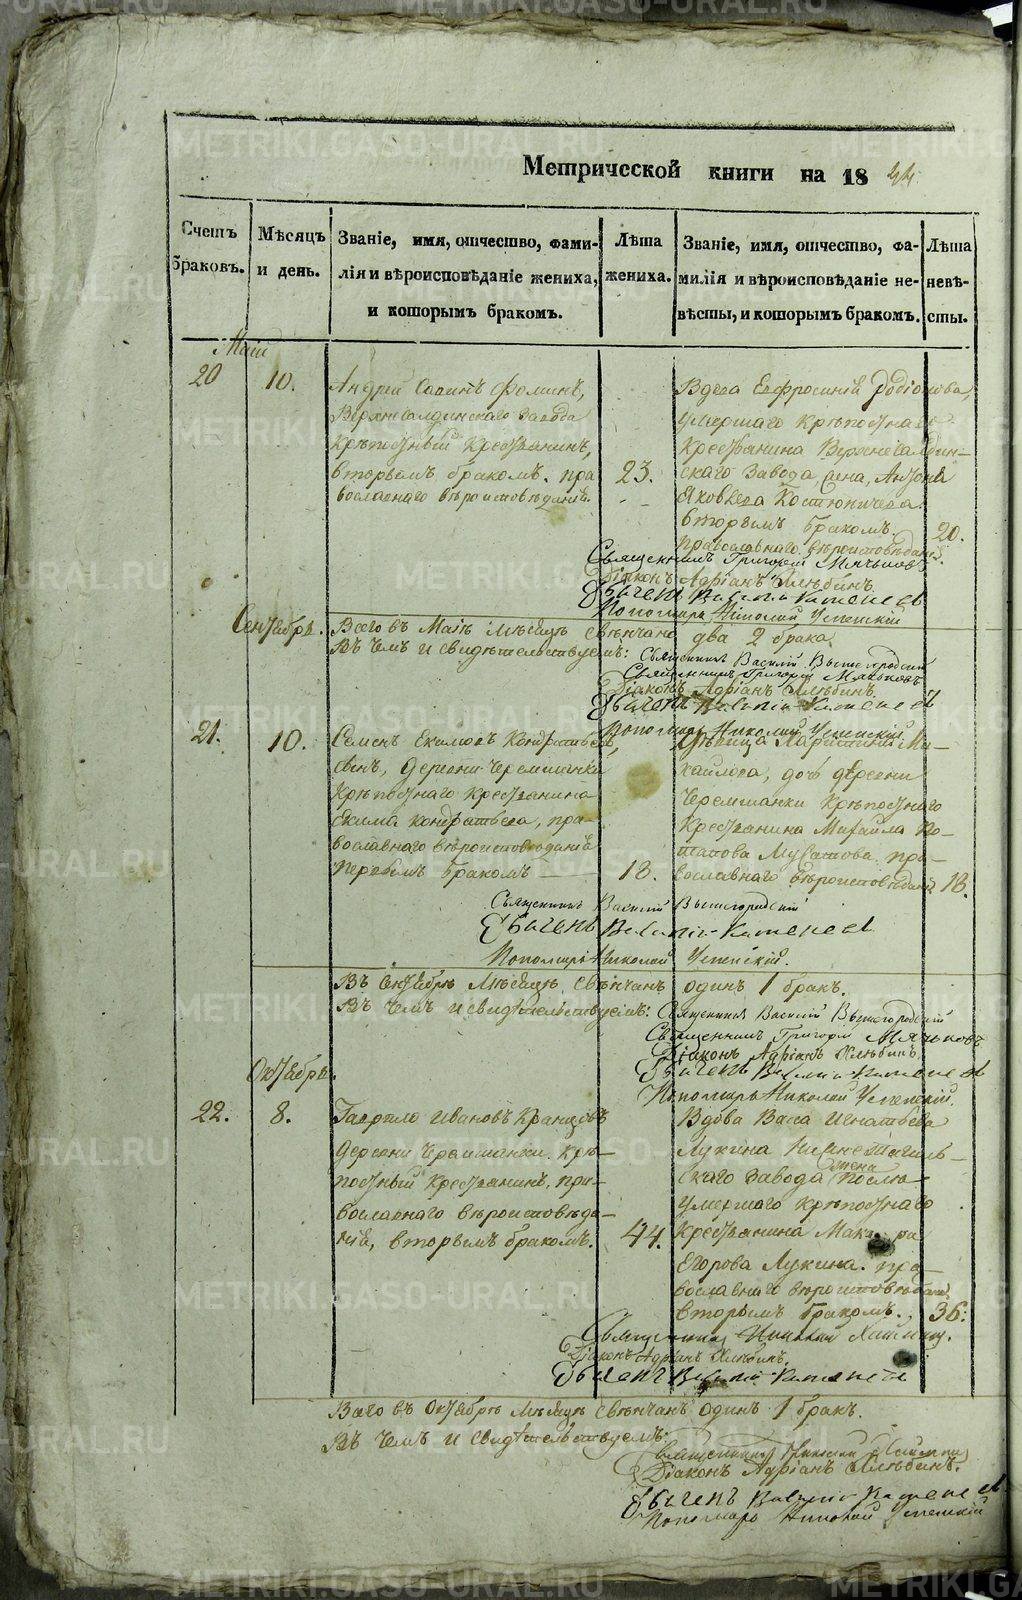 Метрической книги на 18 44
Счетъ браковъ.
Мѣсяцъ и день.
Званіе, имя, отчество, фами-
лія и вѣроисповѣданіе жениха,
и которымъ бракомъ.
Лѣта
жениха.
Званіе, имя, отчество, фа-
милія и вѣроисповѣданіе не-
вѣсты, и которымъ бракомъ.
Лѣта
невѣ-
сты.
Маіи
20
10.
Андрей Савинъ Фоминъ,
Верхнесалдинскаго Завода
крѣпостный крестьянинъ,
вторымъ бракомъ. пра
вославнаго вѣроисповѣданія.
23.
Вдова Евфросинія Родіонова,
умершаго крѣпостнаго
крестьянина Верхнесалдин-
скаго Завода, Антона
Яковлева
вторымъ бракомъ.
православнаго вѣроисповѣданія.
20.
Священникъ Григорій Мячковъ
Діаконъ Адріанъ Хлѣбинъ.
Каменевъ
Пономарь Николай Успенскій
Сентябрь.
Всего въ Маіѣ мѣсяцѣ свѣнчано два 2 брака
Въ чемъ и свидѣтельствуемъ: Священникъ Василій Вышегородскій
Священникъ Григорій Мячковъ
Діаконъ Адріанъ Хлѣбинъ.
Каменевъ
Пономарь Николай Успенскій.
21.
10.
Семенъ Екимовъ Кондратьевъ,
сынъ, деревни Черемшанки
крѣпостнаго крестьянина
Екима Кондратьева, пра-
вославнаго вѣроисповѣданія
первымъ бракомъ
18.
Дѣвица Ми-
хайлова, дочь деревни
Черемшанки крѣпостнаго
крестьянина Михайла По-
тапова Мусатова. пра-
вославнаго вѣроисповѣданія
18.
Священникъ Василій Вышегородскій
Каменевъ
Пономарь Николай Успенскій.
Въ Сентябрѣ мѣсяцѣ свѣнчанъ одинъ 1 бракъ.
Въ чемъ и свидѣтельствуемъ: Священникъ Василій Вышегородскій
Священникъ Григорій Мячковъ
Діаконъ Адріанъ Хлѣбинъ.
Каменевъ
Пономарь Николай Успенскій.
Октябрь.
22.
8.
Гаврило Ивановъ
деревни Черемшанки. крѣ-
постный крестьянинъ, пра-
вославнаго вѣроисповѣда-
нія, вторымъ бракомъ.
44.
Вдова Васа Игнатьева
Лукина Нижнетагиль-
скаго Завода жена
умершаго крѣпостнаго
крестьянина
Егорова Лукина. пра-
вославнаго вѣроисповѣданія
вторымъ бракомъ.
36.
Священникъ
Діаконъ Адріанъ Хлѣбинъ.
Каменевъ
Всего въ Октябрѣ мѣсяцѣ свѣнчанъ одинъ 1 бракъ.
Въ чемъ и свидѣтельствуемъ:
Священникъ
Діаконъ Адріанъ Хлѣбинъ.
Каменевъ
Пономарь Николай Успенскій
METRIKI.GASO-URAL.RU